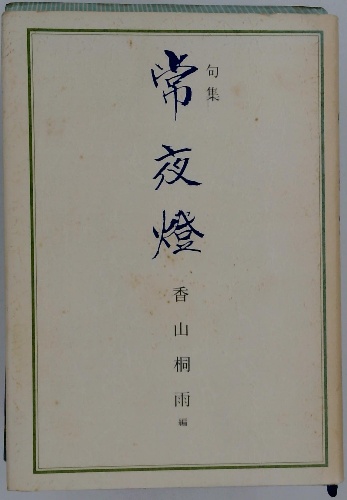 句集
常夜燈
香山桐雨
編